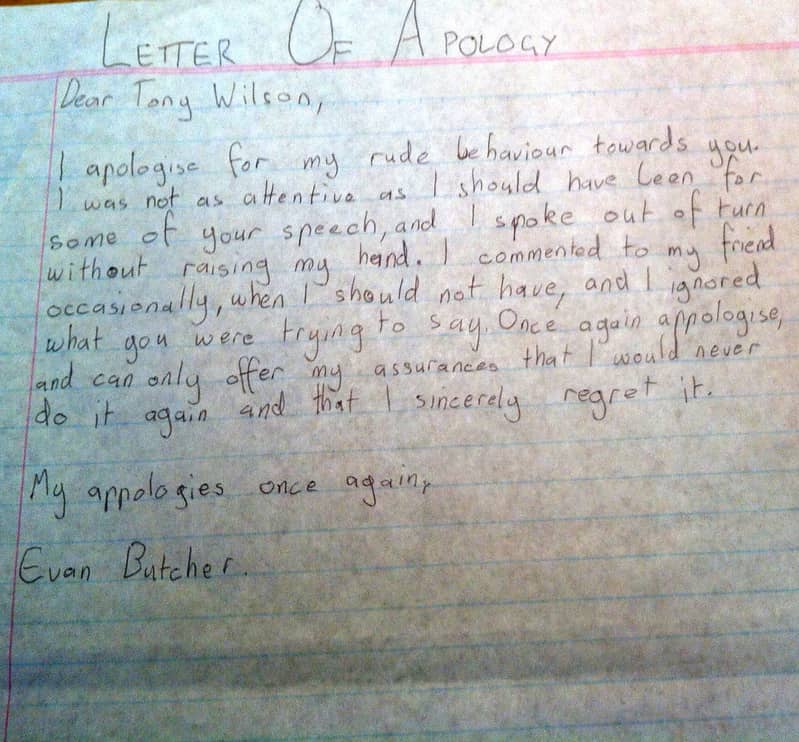 LETTER OF APOLOGY
Dear Tony Wilson,
I apologise for my rude behaviour towards you.
I was not as attentive as I should have been for
some of your speech, and I spoke out of turn
without raising my hand. I commented to my friend
occasionally, when I should not have, and I ignored
what you were trying to say. Once again appologise,
and can only offer my assurances that I would never
do it again and that I sincerely regret it.
My appologies once again,
Evan Butcher.